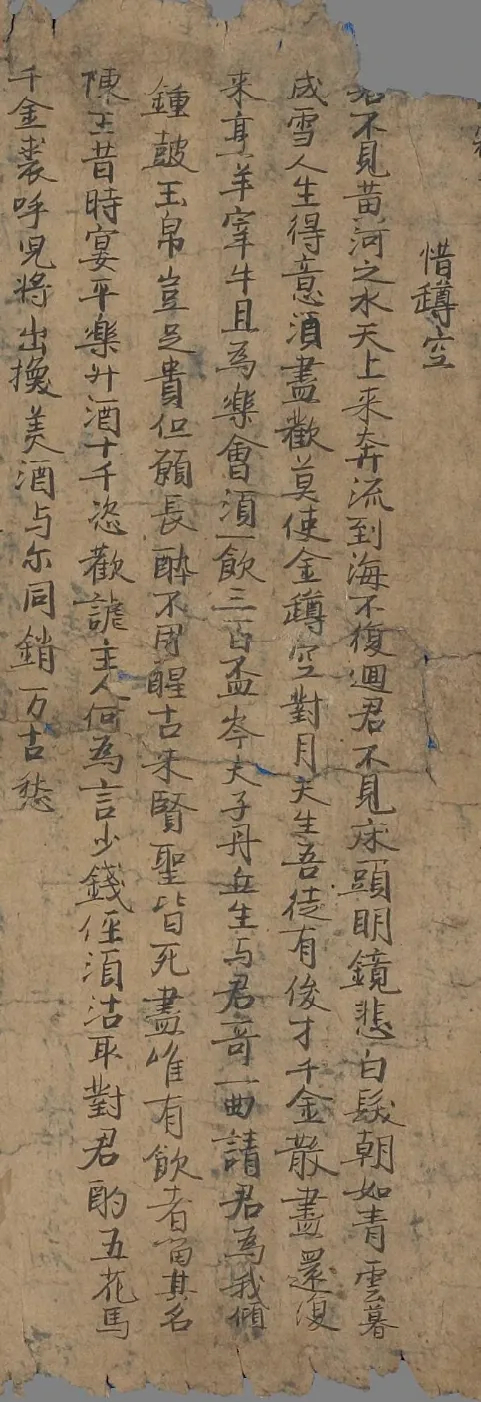 惜罇空
君不見黃河之水天上来奔流到海不復迴君不見床頭明鏡悲白髮朝如青雲暮
成雪人生得意須盡歡莫使金罇空對月天生吾徒有俊才千金散盡還復
来烹羊宰牛且為樂會須一飲三百盃岑夫子丹丘生与君哥一曲請君為我傾
鍾皷玉帛豈足貴但願長醉不用醒古来賢聖皆死盡唯有飲者留其名
陳王昔時宴平樂㪷酒十千恣歡謔主人何為言少錢侄須沽取對君酌五花馬
千金裘呼兒將出換美酒与尔同銷万古愁